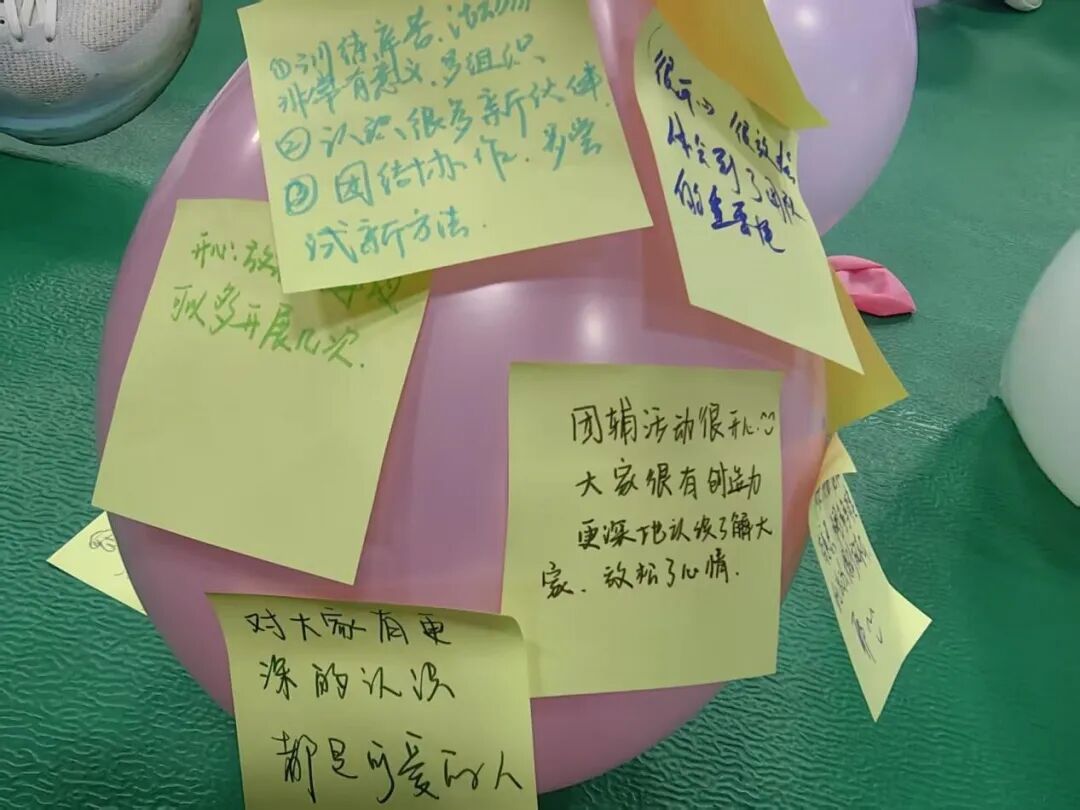 ①训练辛苦、活动
非常有意义、多组织、
②认识很多新伙伴.
③团结协作、多尝
试新方法.
很开心 很放松
体会到了团队
的重要性
开心放
可以多开展几次.
团辅活动很开心
大家很有创造力
更深地认识了解大
家、放松了心情.
对大家有更
深的认识
都是可爱的人